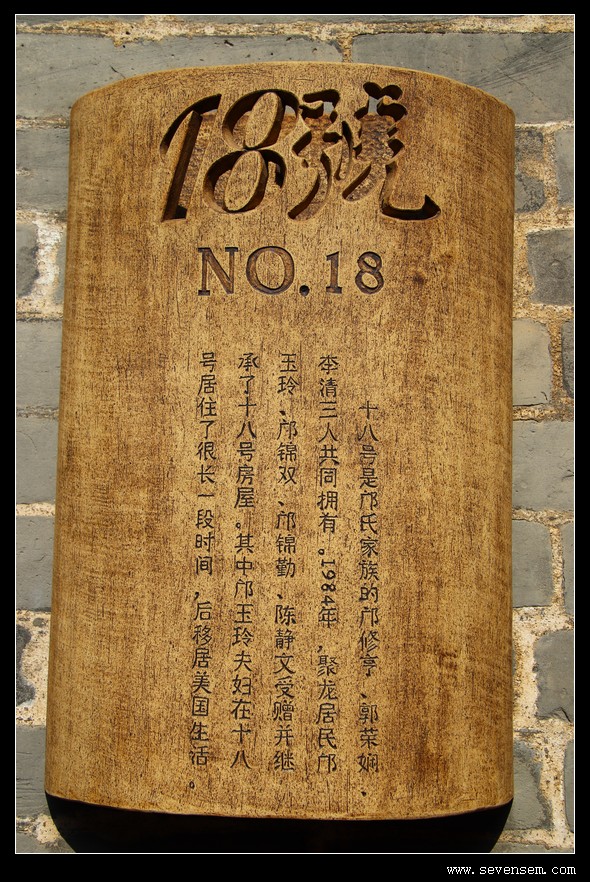 18號
NO.18
十八号是邝氏家族的邝修亨、郭荣娴、
李清三人共同拥有。1984年，聚龙居民邝
玉玲、邝锦双、邝锦勤、陈静文受赠并继
承了十八号房屋。其中邝玉玲夫妇在十八
号居住了很长一段时间，后移居美国生活。
www.sevensem.com